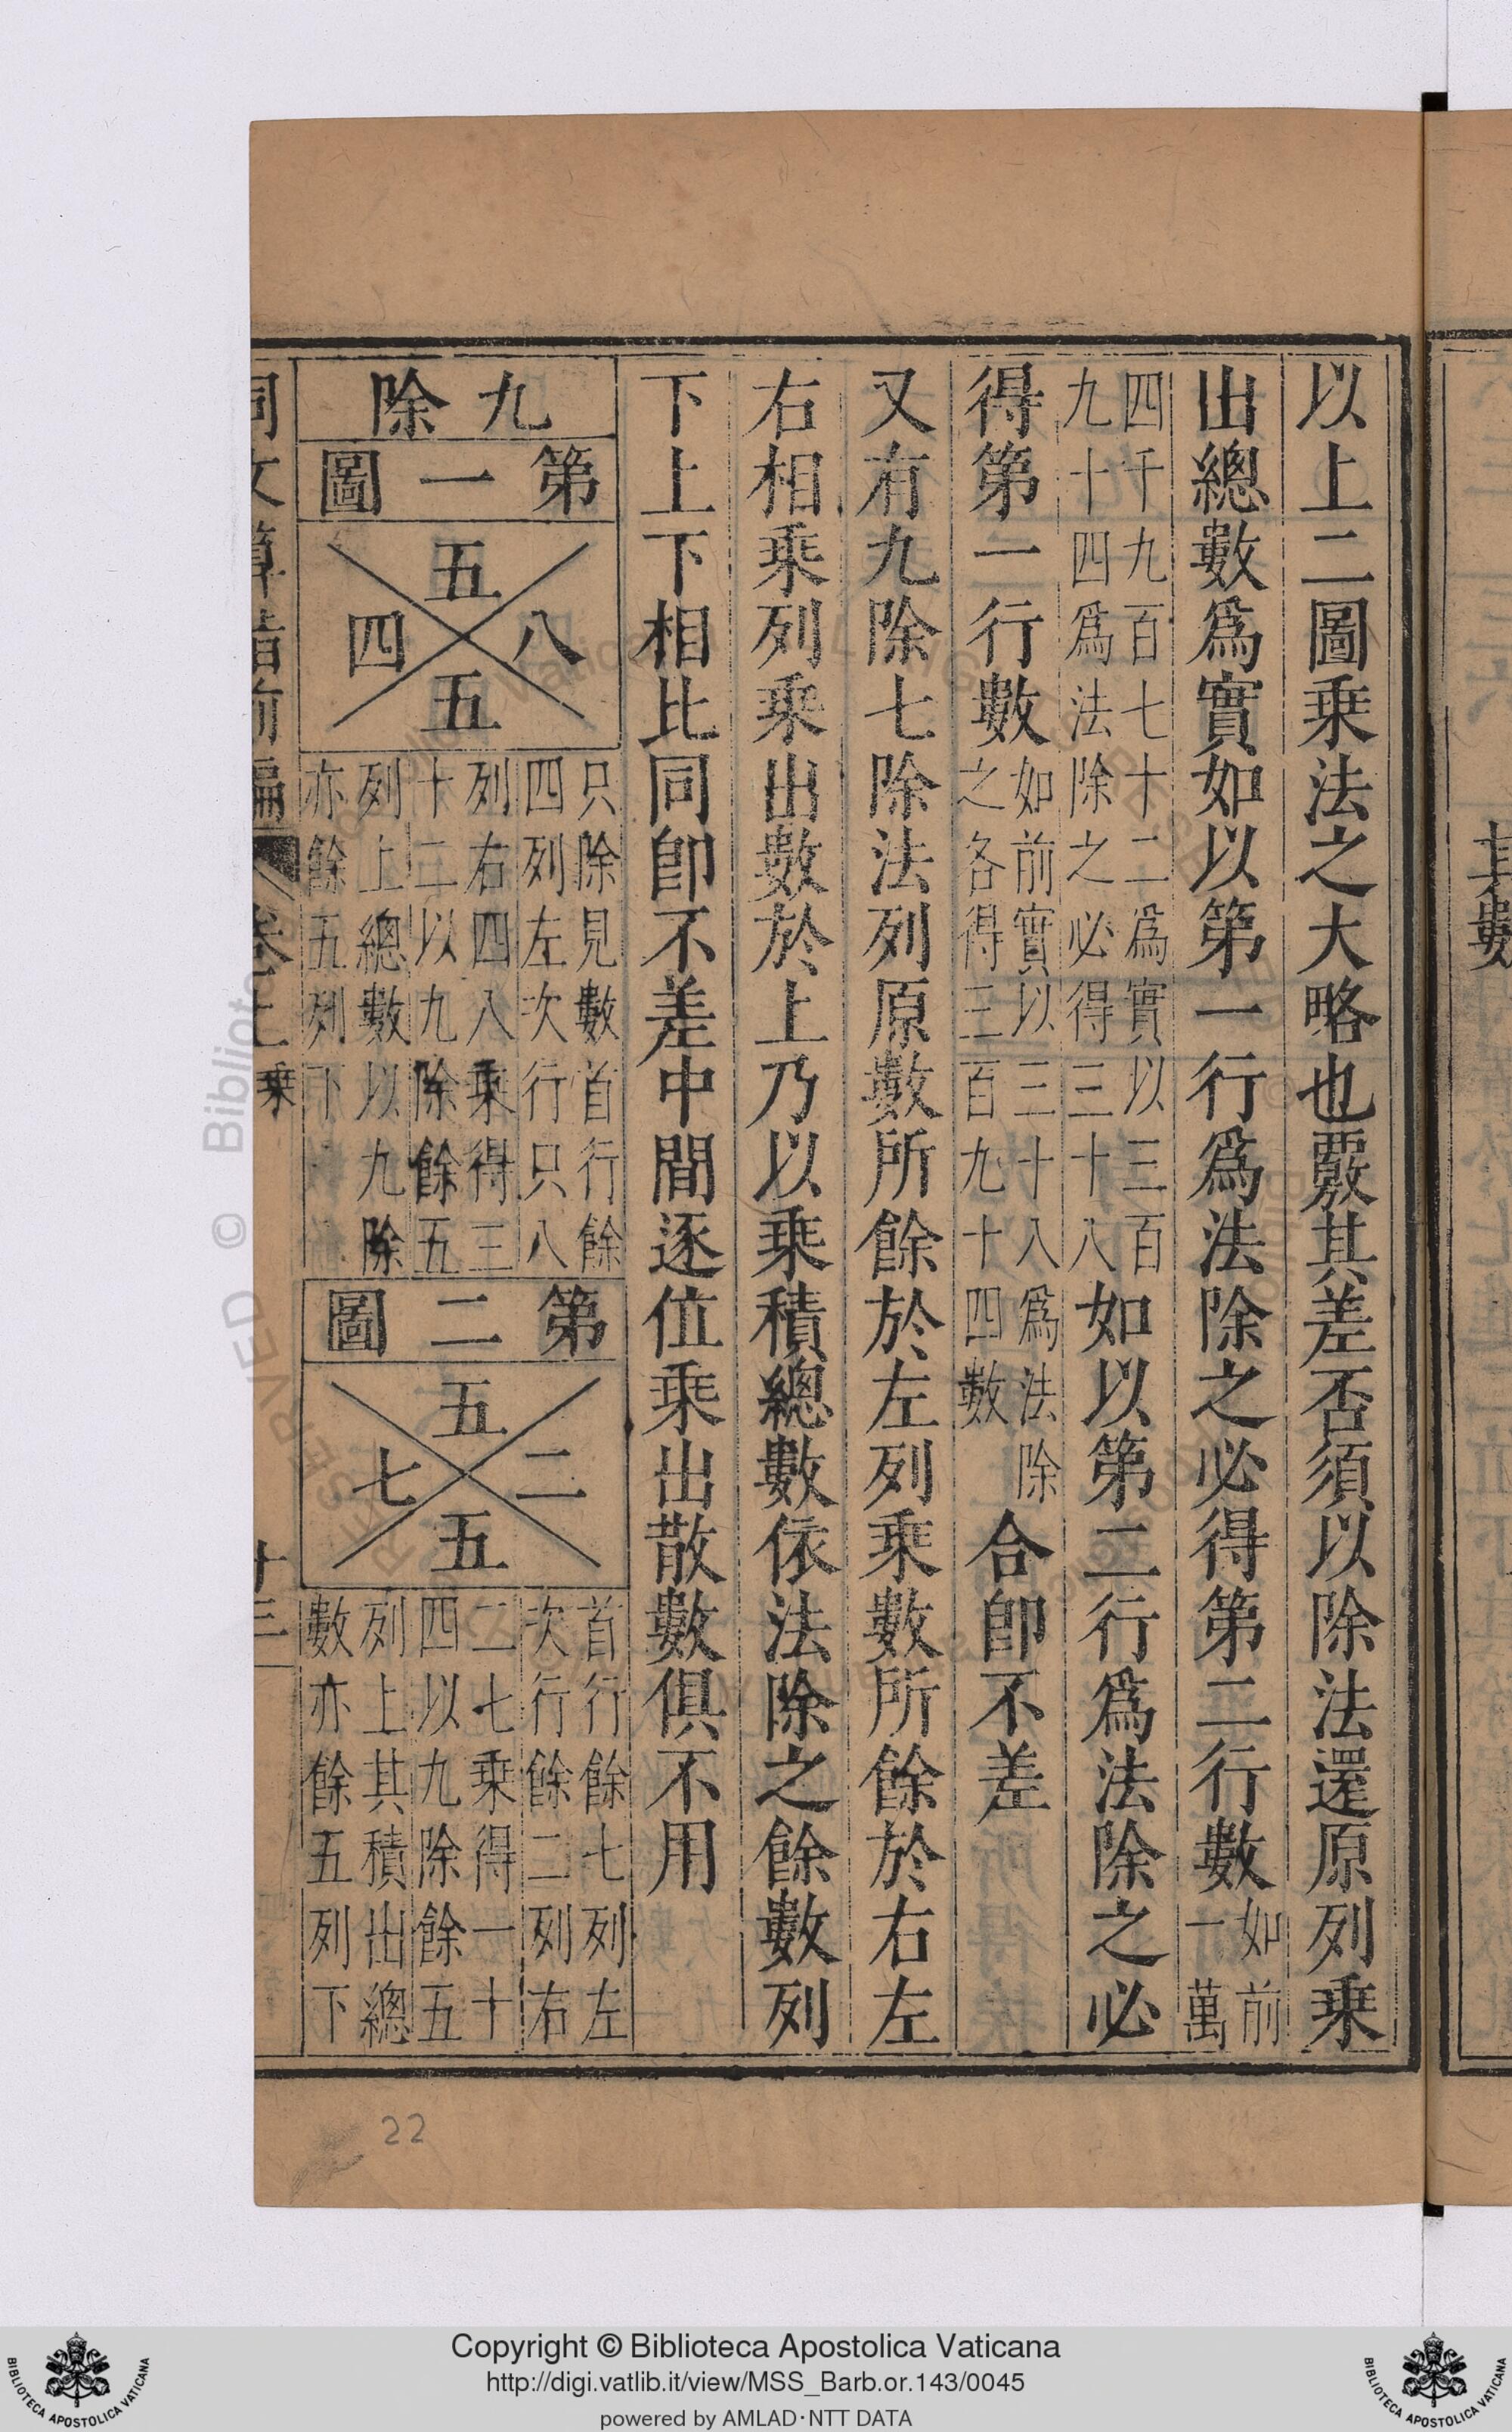 以上二圖乗法之大略也覈其差否須以除法還原列乗
出總數爲實如以第一行爲法除之必得第二行數如前
一萬
四千九百七十二爲實以三百
九十四爲法除之必得三十八
如以第二行爲法除之必
得第一行數如前實以三十八爲法除
之各得三百九十四數
合卽不差
又有九除七除法列原數所餘於左列乘數所餘於右左
右相乘列乘出數於上乃以乘積總數依法除之餘數列
下上下相比同卽不差中間逐位乘出散數俱不用
九除
第一圖
五
八
四
五
只除見數首行餘
四列左次行只八
列右四八乘得三
十二以九除餘五
列上總數以九除
亦餘五列下
第二圖
五
二
七
五
首行餘七列左
次行餘二列右
二七乘得一十
四以九除餘五
列上其積出總
數亦餘五列下
同文算指前編
卷上
乘
十三
其數
22
© Biblioteca Apostolica Vaticana
Copyright © Biblioteca Apostolica Vaticana
http://digi.vatlib.it/view/MSS_Barb.or.143/0045
powered by AMLAD·NTT DATA
BIBLIOTECA APOSTOLICA VATICANA
BIBLIOTECA APOSTOLICA VATICANA